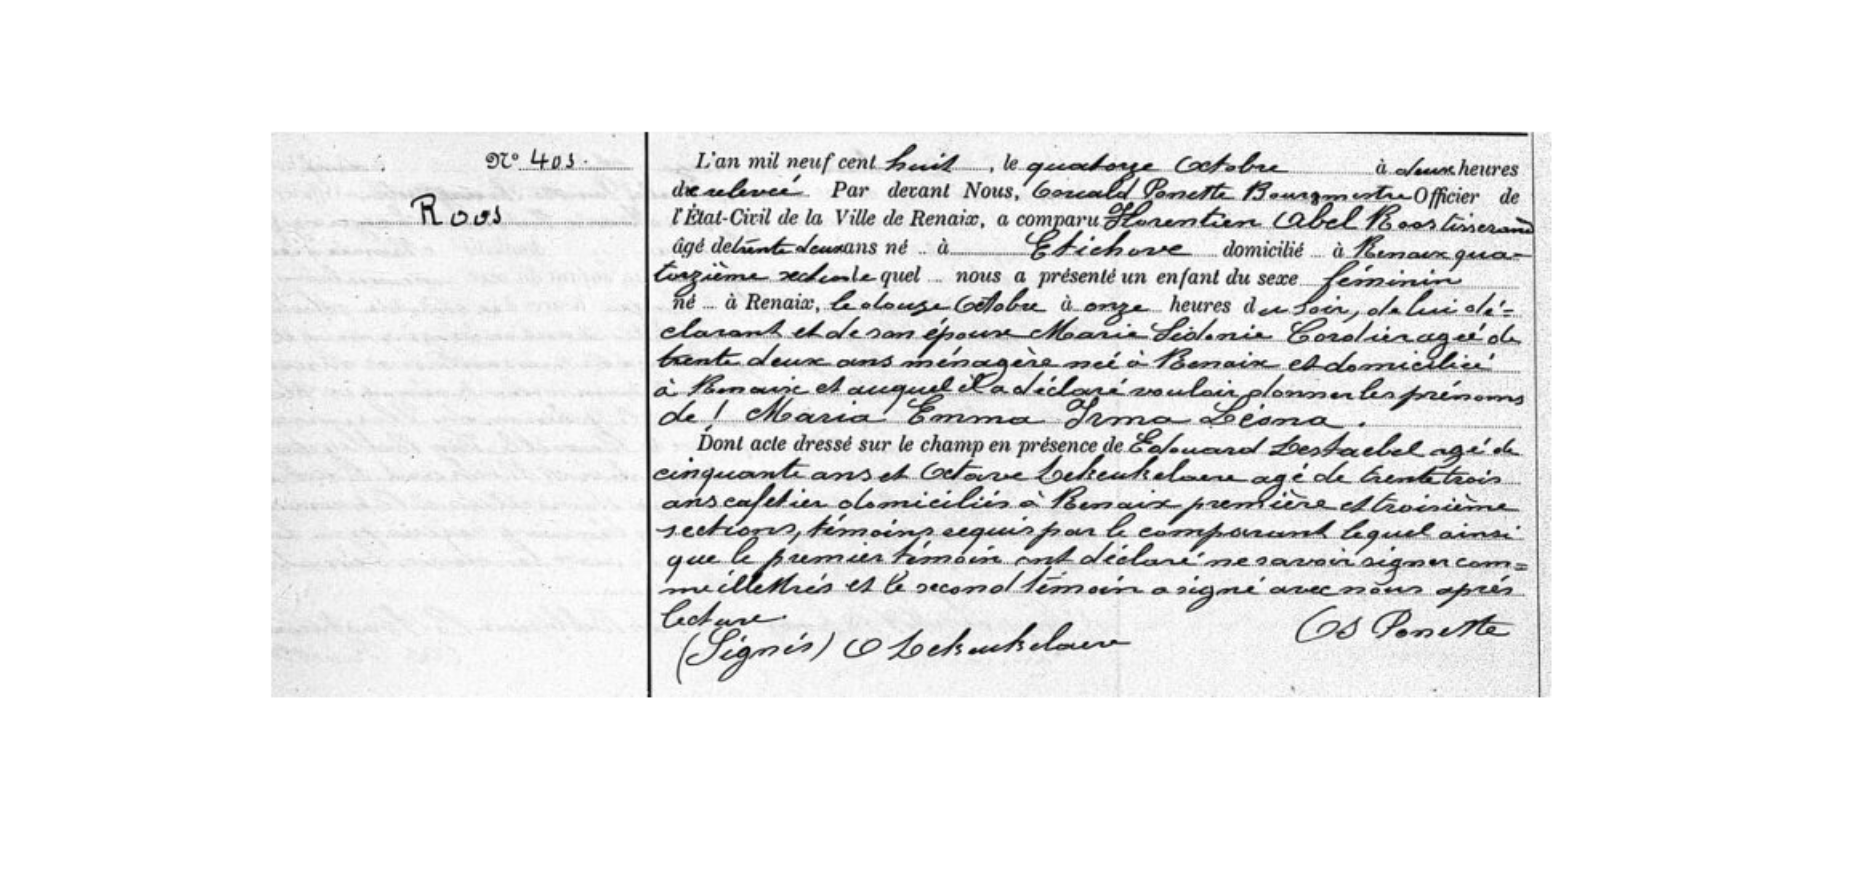 Nº 403.
Roos
L'an mil neuf cent huit, le quatorze Octobre à deux heures
de relevée. Par devant Nous, Oswald Ponette Bourgmestre Officier de
l'État-Civil de la Ville de Renaix, a comparu Florentien Abel Roos tisserand
âgé de trente deux ans né .. à Etichove domicilié .. à Renaix qua-
torzième section lequel ... nous a présenté un enfant du sexe féminin
né ... à Renaix, le douze Octobre à onze heures du soir, de lui dé-
clarant et de son épouse Marie Sidonie Cordier agée de
trente deux ans ménagère née à Renaix et domiciliée
à Renaix et auquel il a déclaré vouloir donner les prénoms
de ! Maria Emma Irma Léona.
Dont acte dressé sur le champ en présence de Edouard Destaebel agé de
cinquante ans et Octave Dekeukelaere agé de trente trois
ans cafetier domiciliés à Renaix première et troisième
sections, témoins requis par le comparant lequel ainsi
que le premier témoin ont déclaré ne savoir signer com=
me illettrés et le second témoin a signé avec nous après
lecture.
(Signés) O Dekeukelaere Os Ponette